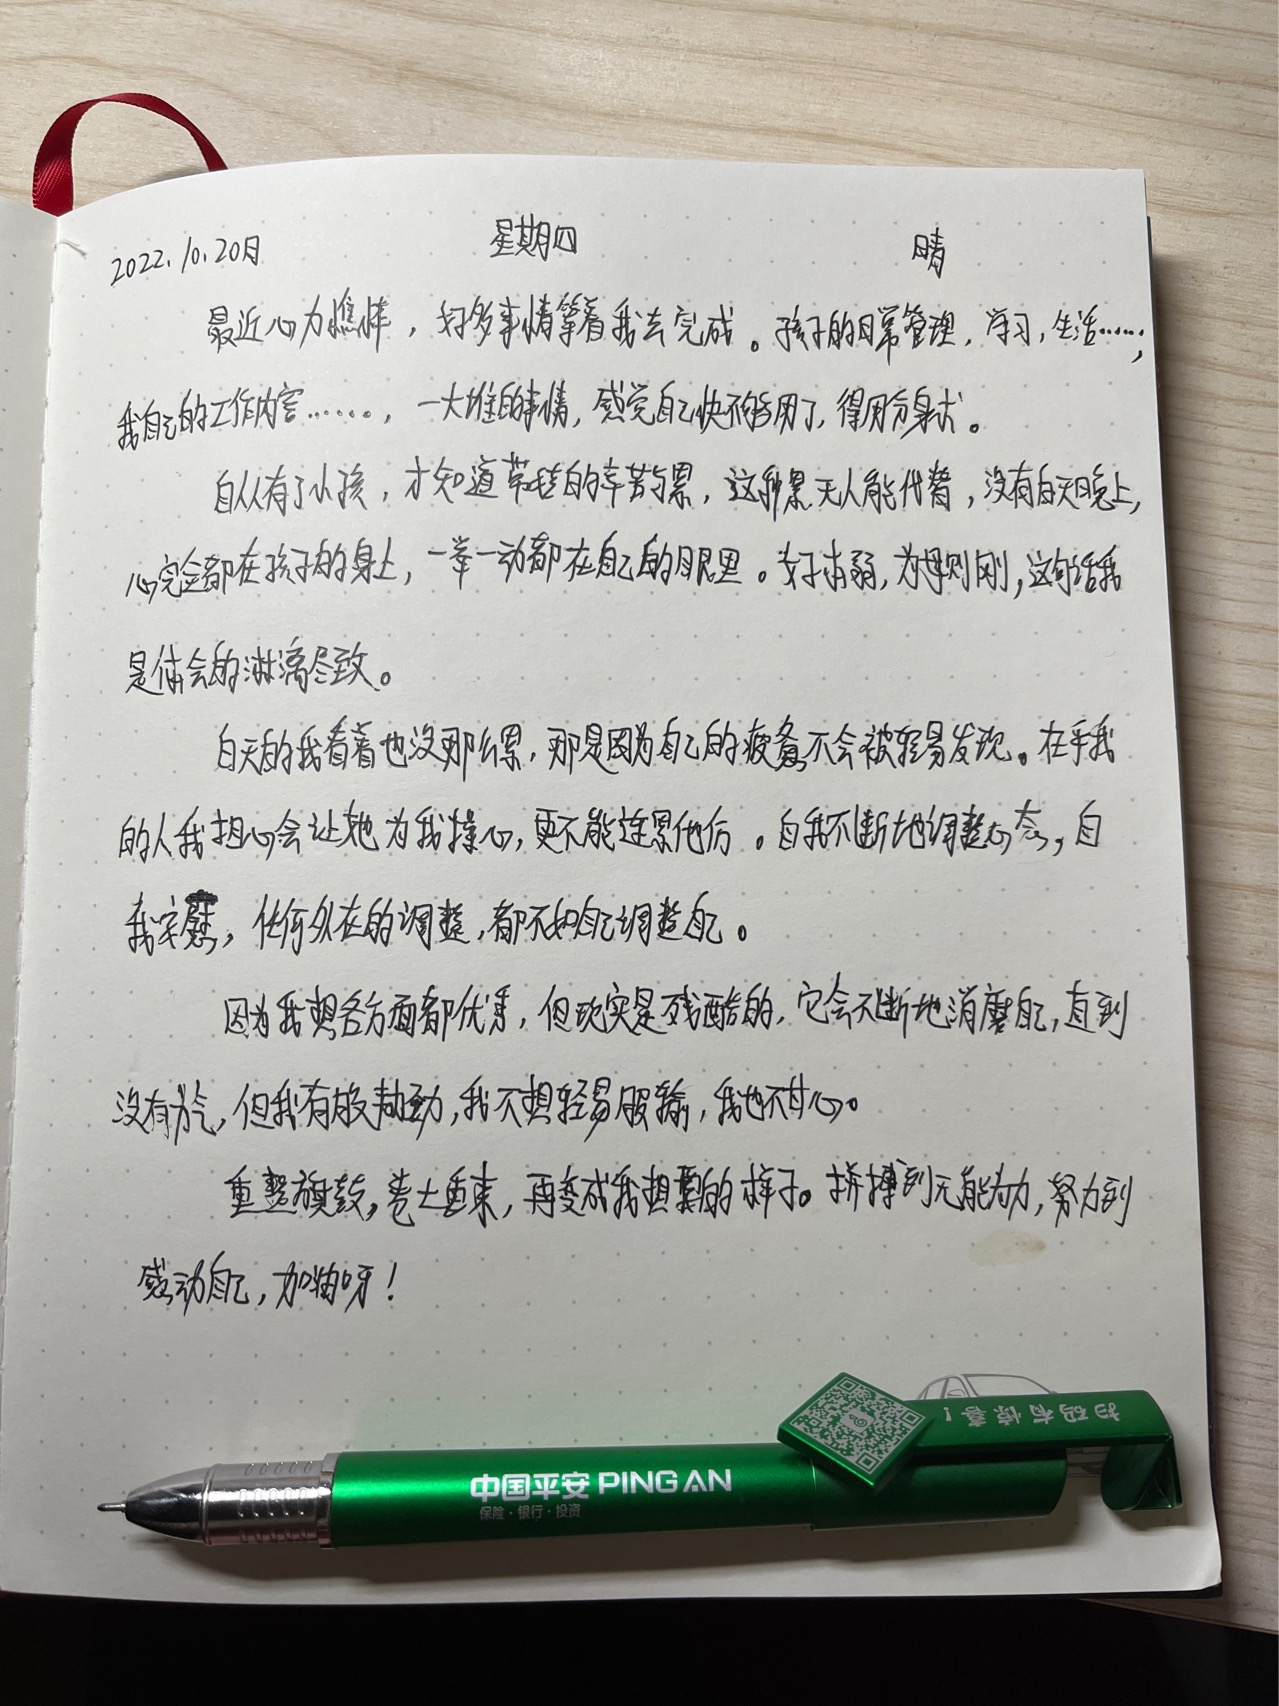 2022.10.20日 星期四 晴
最近心力憔悴，好多事情等着我去完成。孩子的日常管理，学习，生活……；
我自己的工作内容……，一大堆的事情，感觉自己快不够用了，得用分身术。
自从有了小孩，才知道带娃的辛苦与累，这种累无人能代替，没有白天晚上，
心完全都在孩子的身上，一举一动都在自己的眼里。女子本弱，为母则刚，这句话我
是体会的淋漓尽致。
白天的我看着也没那么累，那是因为自己的疲惫不会被轻易发现。在乎我
的人我担心会让她为我操心，更不能连累他们。自我不断地调整心态，自
我安慰，任何外在的调整，都不如自己调整自己。
因为我想各方面都优秀，但现实是残酷的，它会不断地消磨自己，直到
没有力气，但我有股劲，我不想轻易服输，我也不甘心。
重整旗鼓，卷土重来，再变成我想要的样子。拼搏到无能为力，努力到
感动自己，加油呀！
扫码有惊喜！
中国平安 PING AN
保险·银行·投资